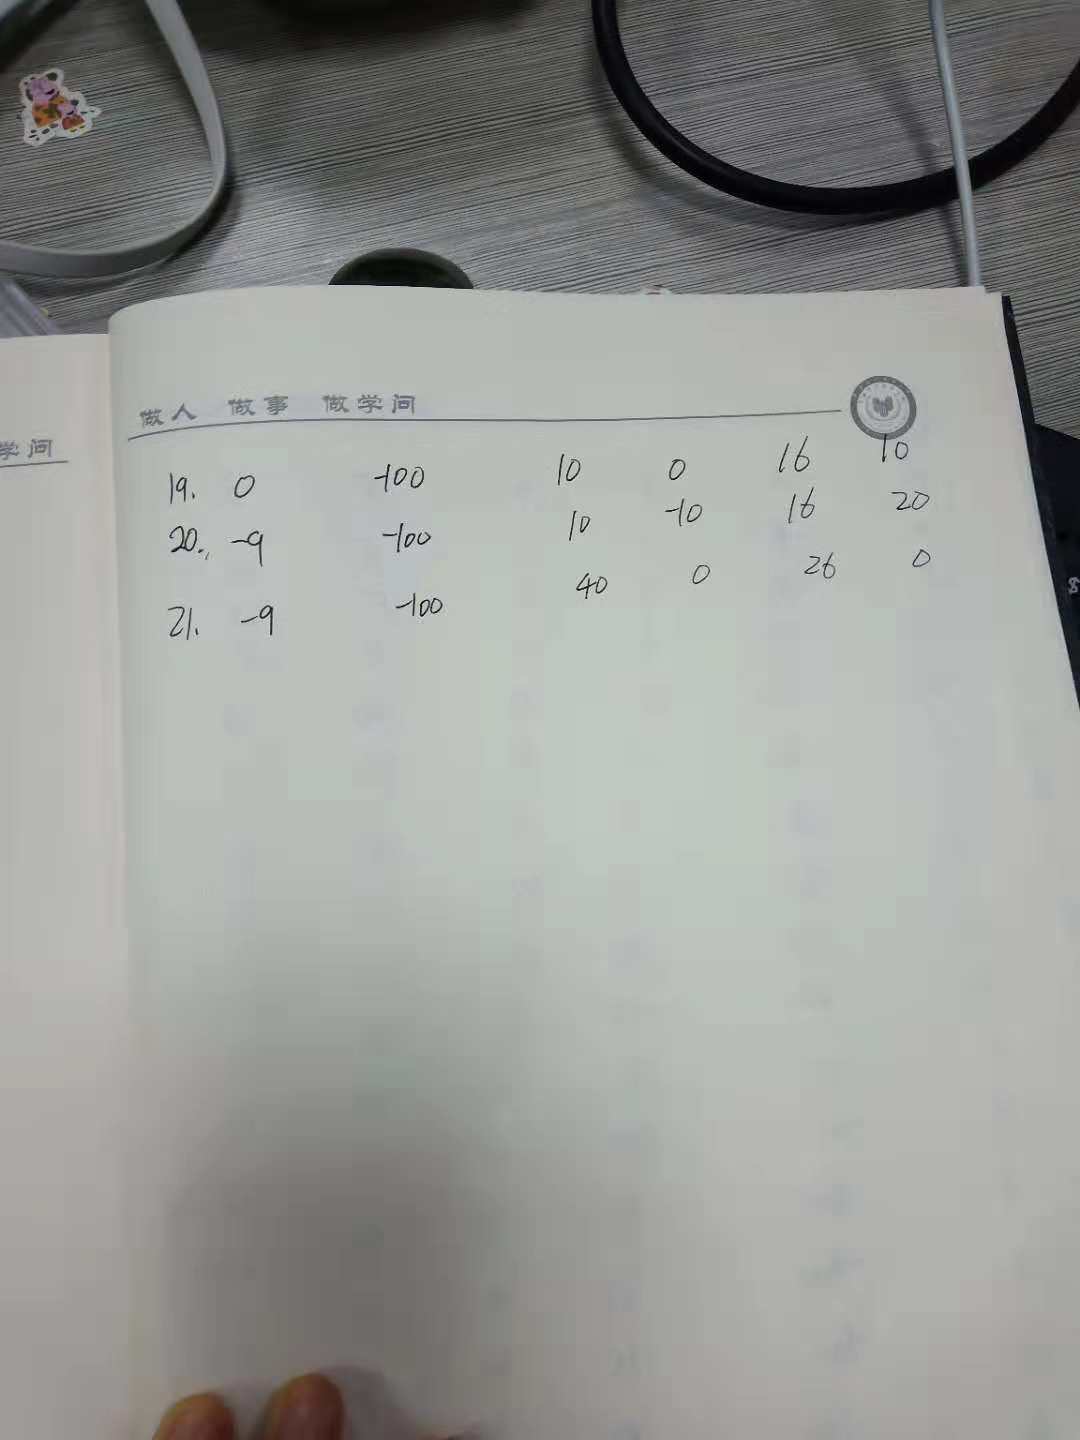 做人 做事 做学问
学问
19. 0 -100 10 0 16 10
20. -9 -100 10 -10 16 20
21. -9 -100 40 0 26 0
8